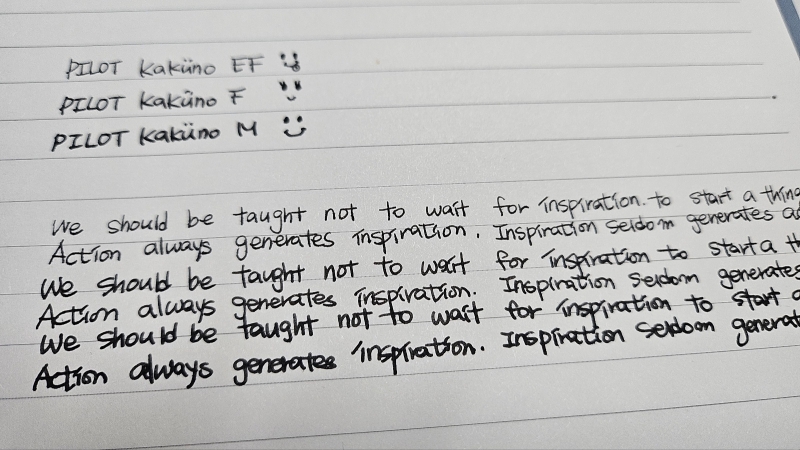 PILOT Kaküno EF
PILOT Kaküno F
PILOT Kaküno M
We should be taught not to wait for inspiration. to start a thing
Action always generates inspiration. Inspiration seldom generates
We should be taught not to wait for inspiration to start a
Action always generates inspiration. Inspiration seldom generates
We should be taught not to wait for inspiration to start
Action always generates inspiration. Inspiration seldom